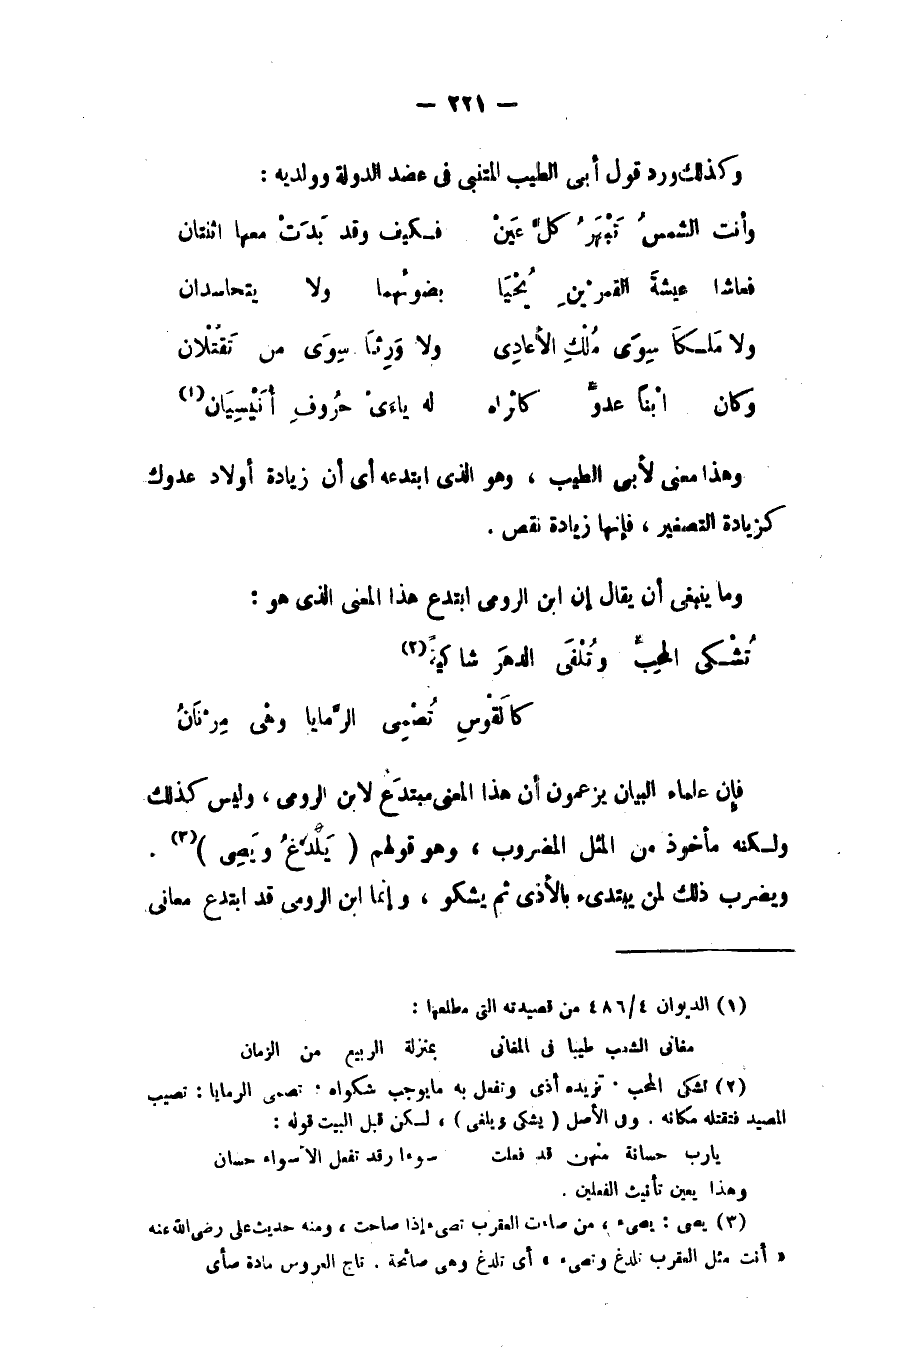 — ٢٢١ —
وكذلك ورد قول أبى الطيب المتنبى فى عضد الدولة وولديه :
وأنت الشمسُ تَبْهَرُ كلَّ عَينْ فـكيف وقد بَدَتْ معها اثنتان
فعاشا عيشةَ القمرَيْنِ يُحْيَا بضوئهما ولا يتحاسدان
ولا مَلَـكَا سِوَى مُلْكِ الأعادِى ولا وَرِثَا سِوَى من تَقتُلان
وكان ابْنَا عدوٍّ كاثراه له ياءَىْ حرُوفِ أُنَيْسِيَان(١)
وهذا معنى لأبى الطيب ، وهو الذى ابتدعه أى أن زيادة أولاد عدوك
كزيادة التصغير ، فإنها زيادة نقص .
وما ينبغى أن يقال إن ابن الرومى ابتدع هذا المعنى الذى هو :
تُشْـكى المحبَّ وتُلْفَى الدهرَ شاكيةً(٢)
كالقَوْسِ تُصْمِى الرَّمايا وهْى مِرْنَانُ
فإن علماء البيان يزعمون أن هذا المعنى مبتدَع لابن الرومى ، وليس كذلك
ولـكنه مأخوذ من المثل المضروب ، وهو قولهم ( يَلْدَغُ ويَصِى )(٣) .
ويضرب ذلك لمن يبتدىء بالأذى ثم يشكو ، وإنما ابن الرومى قد ابتدع معانى
(١) الديوان ٤٨٦/٤ من قصيدته التى مطلعها :
مغانى الشعب طيبا فى المغانى بمنزلة الربيع من الزمان
(٢) تشكى المحب : تزيده أذى وتفعل به مايوجب شكواه : تصمى الرمايا : تصيب
المصيد فتقتله مكانه . وفى الأصل ( يشكى ويلفى ) ، لـكن قبل البيت قوله :
يارب حسانة منهن قد فعلت سوءا وقد تفعل الأسواء حسان
وهذا يعين تأنيث الفعلين .
(٣) يصى : يصىء ، من صاءت العقرب تصىء إذا صاحت ، ومنه حديث على رضى الله عنه
« أنت مثل العقرب تلدغ وتصىء » أى تلدغ وهى صائحة . تاج العروس مادة صأى